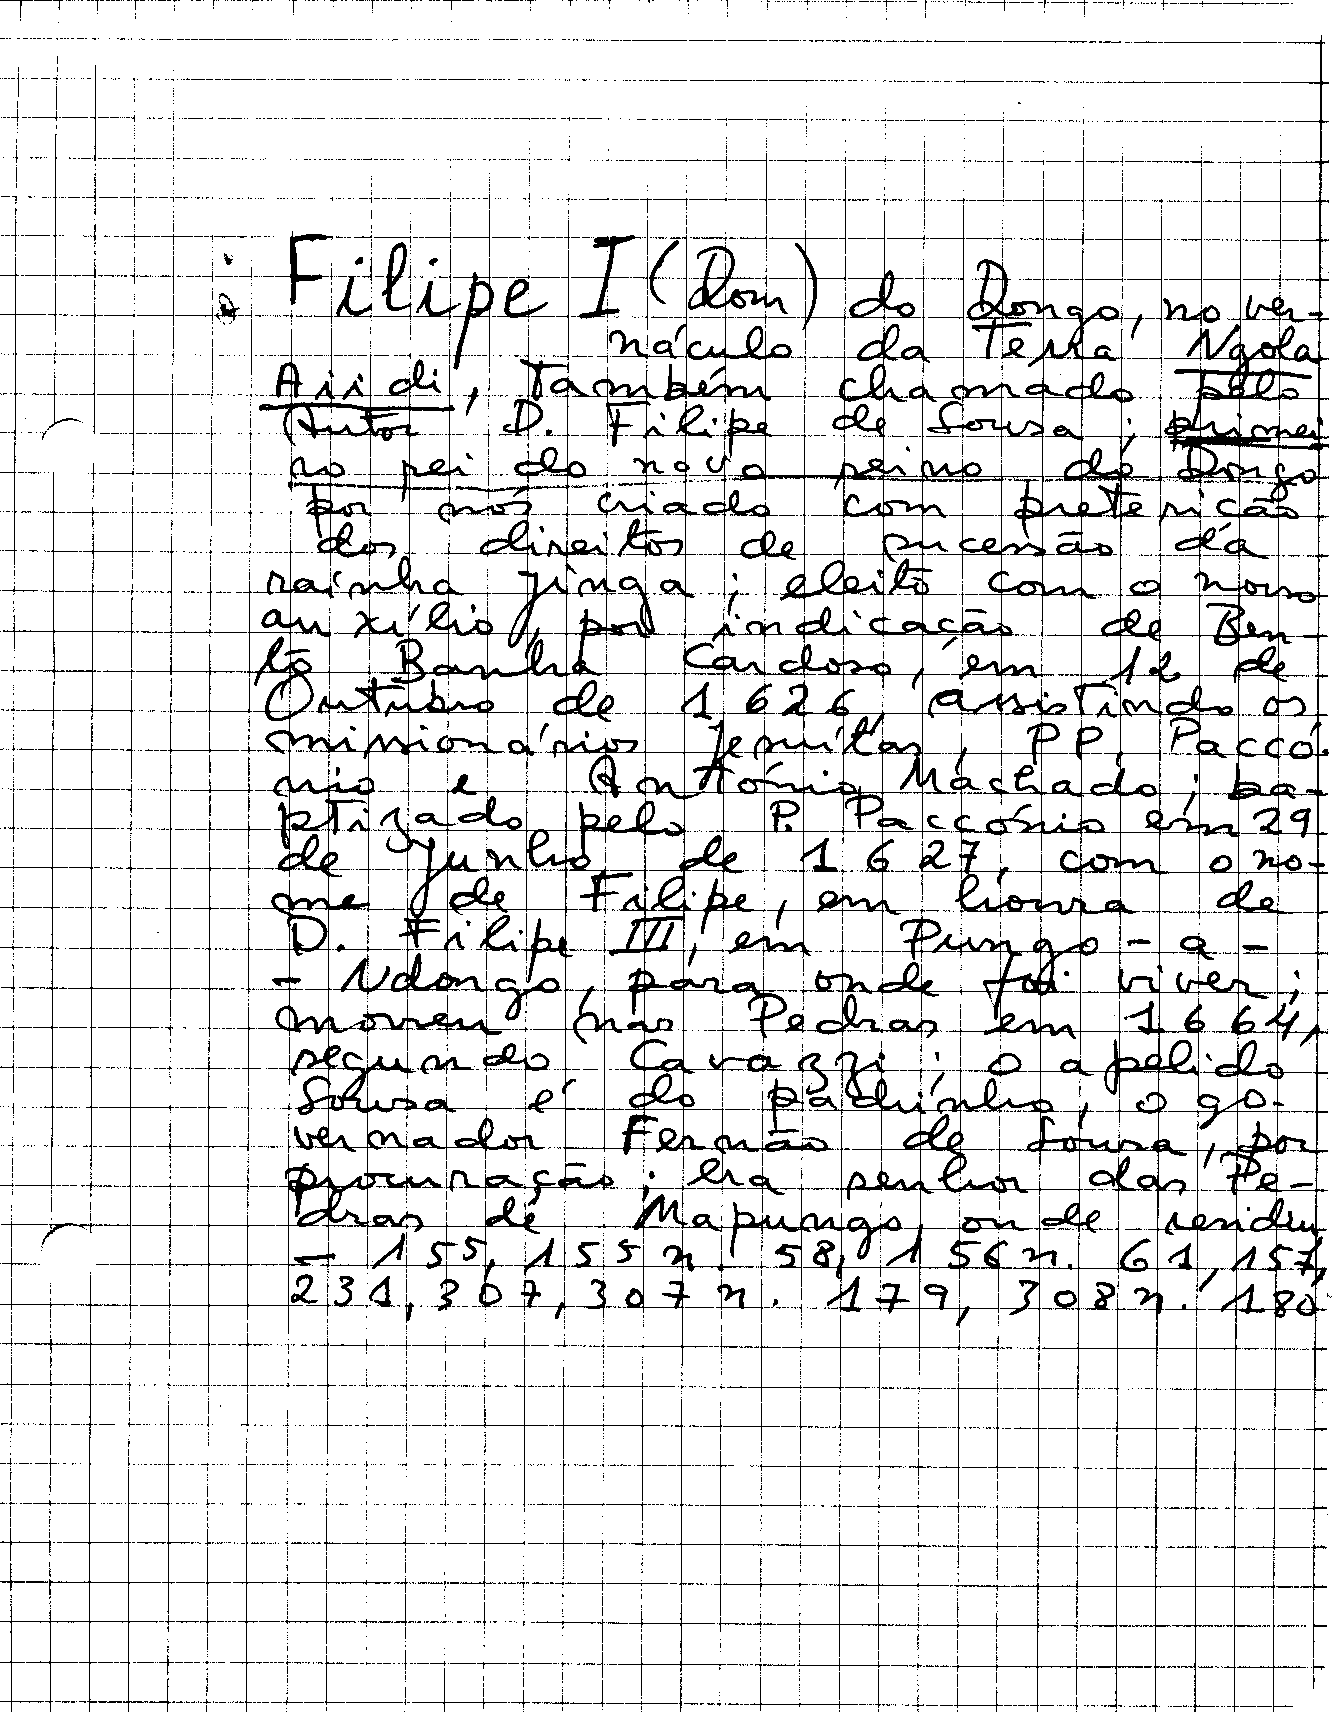 Filipe I (Dom) do Dongo, no ver-
náculo da Terra Ngola
Aiidi, também chamado pelo
Autor D. Filipe de Sousa; primei
ro rei do novo reino do Dongo
por nós criado com preterição
dos direitos de sucessão da
rainha Jinga; eleito com o nosso
auxílio, por indicação de Ben-
to Banha Cardoso, em 12 de
Outubro de 1626, assistindo os
missionários Jesuítas, PP. Paccó-
nio e António Machado; ba-
ptizado pelo P. Paccónio em 29
de Junho de 1627, com o no-
me de Filipe, em honra de
D. Filipe III, em Pungo-a-
-Ndongo, para onde foi viver;
morreu nas Pedras em 1664,
segundo Cavazzi; o apelido
Sousa é do padrinho, o go-
vernador Fernão de Sousa, por
procuração; era senhor das Pe-
dras de Mapungo, onde residiu
— 155, 155 n. 58, 156 n. 61, 157,
231, 307, 307 n. 179, 308 n. 180